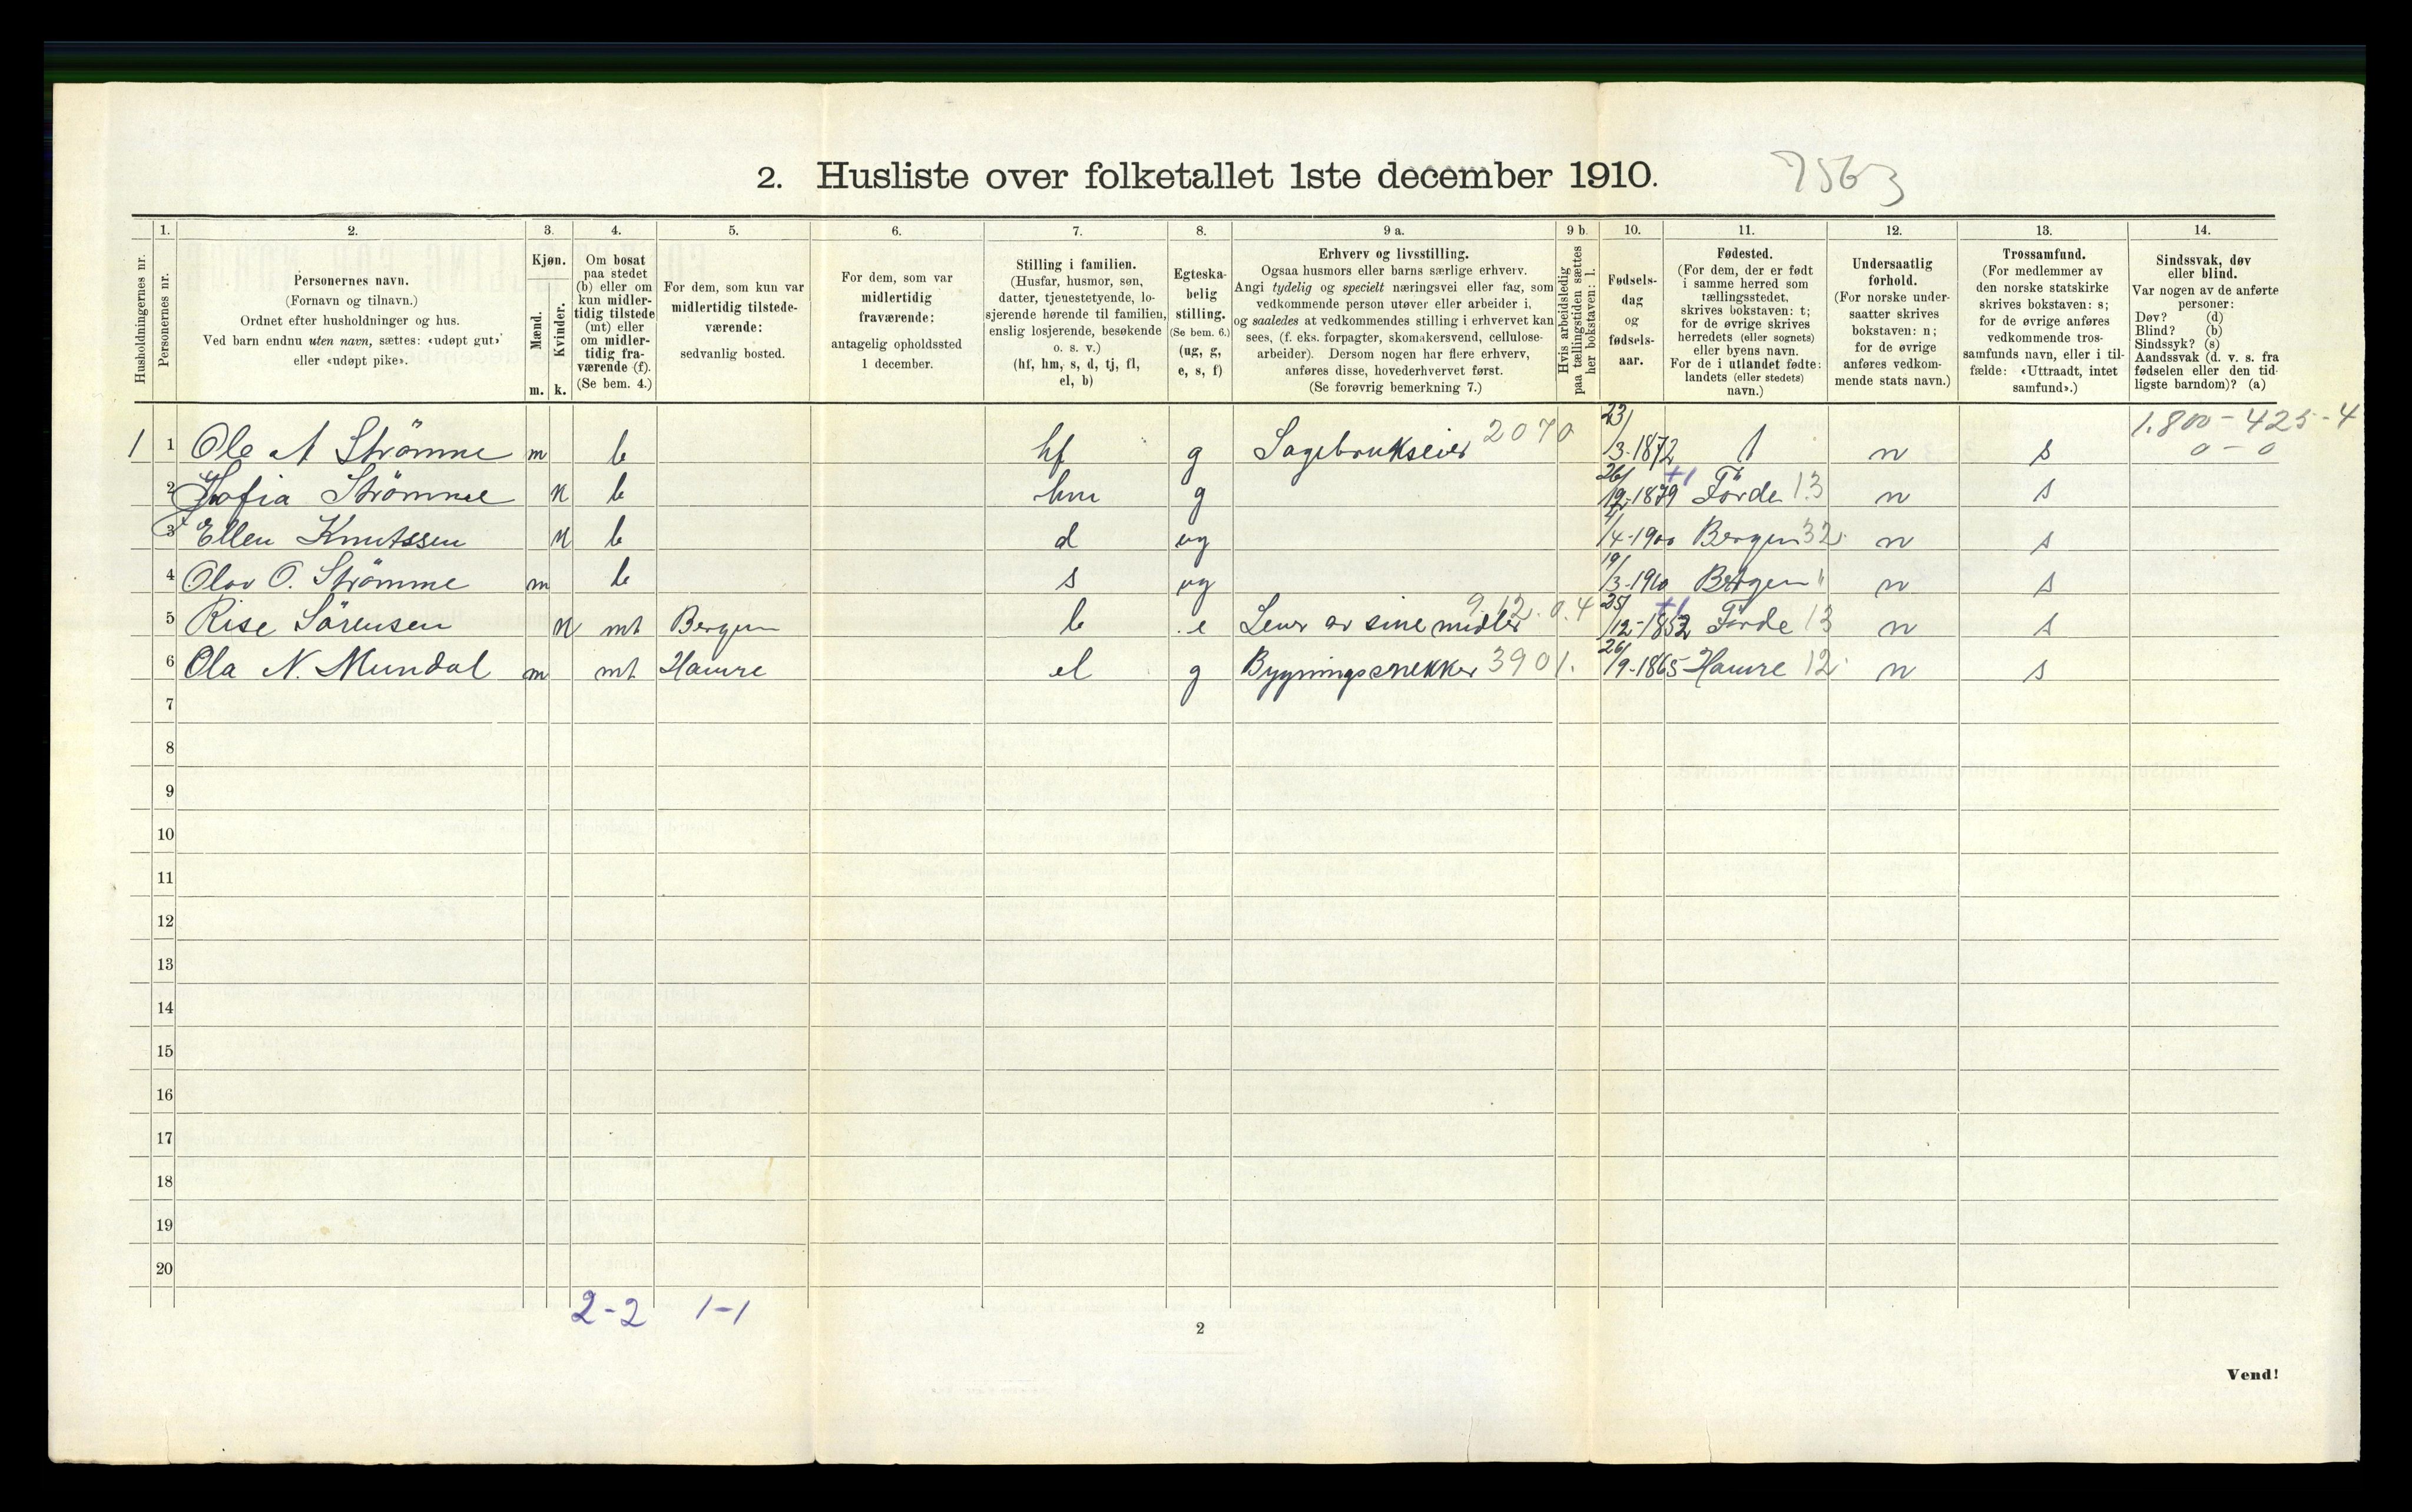 2. Husliste over folketallet 1ste december 1910.
7563
Husholdningernes nr.
1.
Personernes nr.
2.
Personernes navn.
(Fornavn og tilnavn.)
Ordnet efter husholdninger og hus.
Ved barn endnu uten navn, sættes: «udøpt gut»
eller «udøpt pike».
3.
Kjøn.
Mænd.
Kvinder.
m. k.
4.
Om bosat
paa stedet
(b) eller om
kun midler-
tidig tilstede
(mt) eller
om midler-
tidig fra-
værende (f).
(Se bem. 4.)
5.
For dem, som kun var
midlertidig tilstede-
værende:
sedvanlig bosted.
6.
For dem, som var
midlertidig
fraværende:
antagelig opholdssted
1 december.
7.
Stilling i familien.
(Husfar, husmor, søn,
datter, tjenestetyende, lo-
sjerende hørende til familien,
enslig losjerende, besøkende
o. s. v.)
(hf, hm, s, d, tj, fl,
el, b)
8.
Egteska-
belig
stilling.
(Se bem. 6.)
(ug, g,
e, s, f)
9 a.
Erhverv og livsstilling.
Ogsaa husmors eller barns særlige erhverv.
Angi tydelig og specielt næringsvei eller fag, som
vedkommende person utøver eller arbeider i,
og saaledes at vedkommendes stilling i erhvervet kan
sees, (f. eks. forpagter, skomakersvend, cellulose-
arbeider). Dersom nogen har flere erhverv,
anføres disse, hovederhvervet først.
(Se forøvrig bemerkning 7.)
9 b.
Hvis arbeidsledig
paa tællingstiden sættes
her bokstaven: l.
10.
Fødsels-
dag
og
fødsels-
aar.
11.
Fødested.
(For dem, der er født
i samme herred som
tællingsstedet,
skrives bokstaven: t;
for de øvrige skrives
herredets (eller sognets)
eller byens navn.
For de i utlandet fødte:
landets (eller stedets)
navn.)
12.
Undersaatlig
forhold.
(For norske under-
saatter skrives
bokstaven: n;
for de øvrige
anføres vedkom-
mende stats navn.)
13.
Trossamfund.
(For medlemmer av
den norske statskirke
skrives bokstaven: s;
for de øvrige anføres
vedkommende tros-
samfunds navn, eller i til-
fælde: «Uttraadt, intet
samfund».)
14.
Sindssvak, døv
eller blind.
Var nogen av de anførte
personer:
Døv? (d)
Blind? (b)
Sindssyk? (s)
Aandssvak (d. v. s. fra
fødselen eller den tid-
ligste barndom)? (a)
1 1 Ole A Strømme m b hf g Sagebrukseier 2070 23/3-1872 t n s 1.800-425-4
0-0
2 Sofia Strømme k b hm g 26/12-1879 +1 Førde 13 n s
3 Ellen Knutssen k b d ug 4/4-1900 Bergen 32 n s
4 Olav O. Strømme m b s ug 19/3-1910 Bergen " n s
5 Rise Sørensen k mt Bergen b e Lever av sine midler 9.12.0.4 25/12-1852 +1 Førde 13 n s
6 Ola N. Mundal m mt Hamre el g Bygningssnekker 3901. 26/9-1865 Hamre 12 n s
7
8
9
10
11
12
13
14
15
16
17
18
19
20
2-2 1-1
2
Vend!